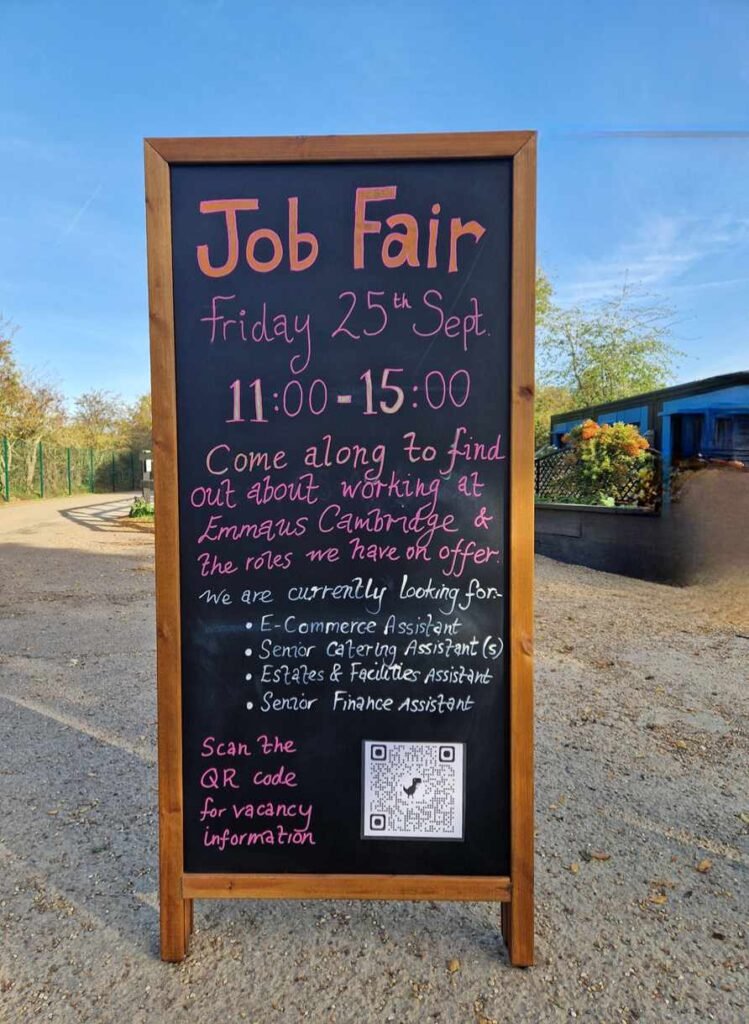 Job Fair
Friday 25th Sept.
11:00 - 15:00
Come along to find
out about working at
Emmaus Cambridge &
the roles we have on offer.
We are currently looking for:-
• E-Commerce Assistant
• Senior Catering Assistant(s)
• Estates & Facilities Assistant
• Senior Finance Assistant
Scan the
QR code
for vacancy
information